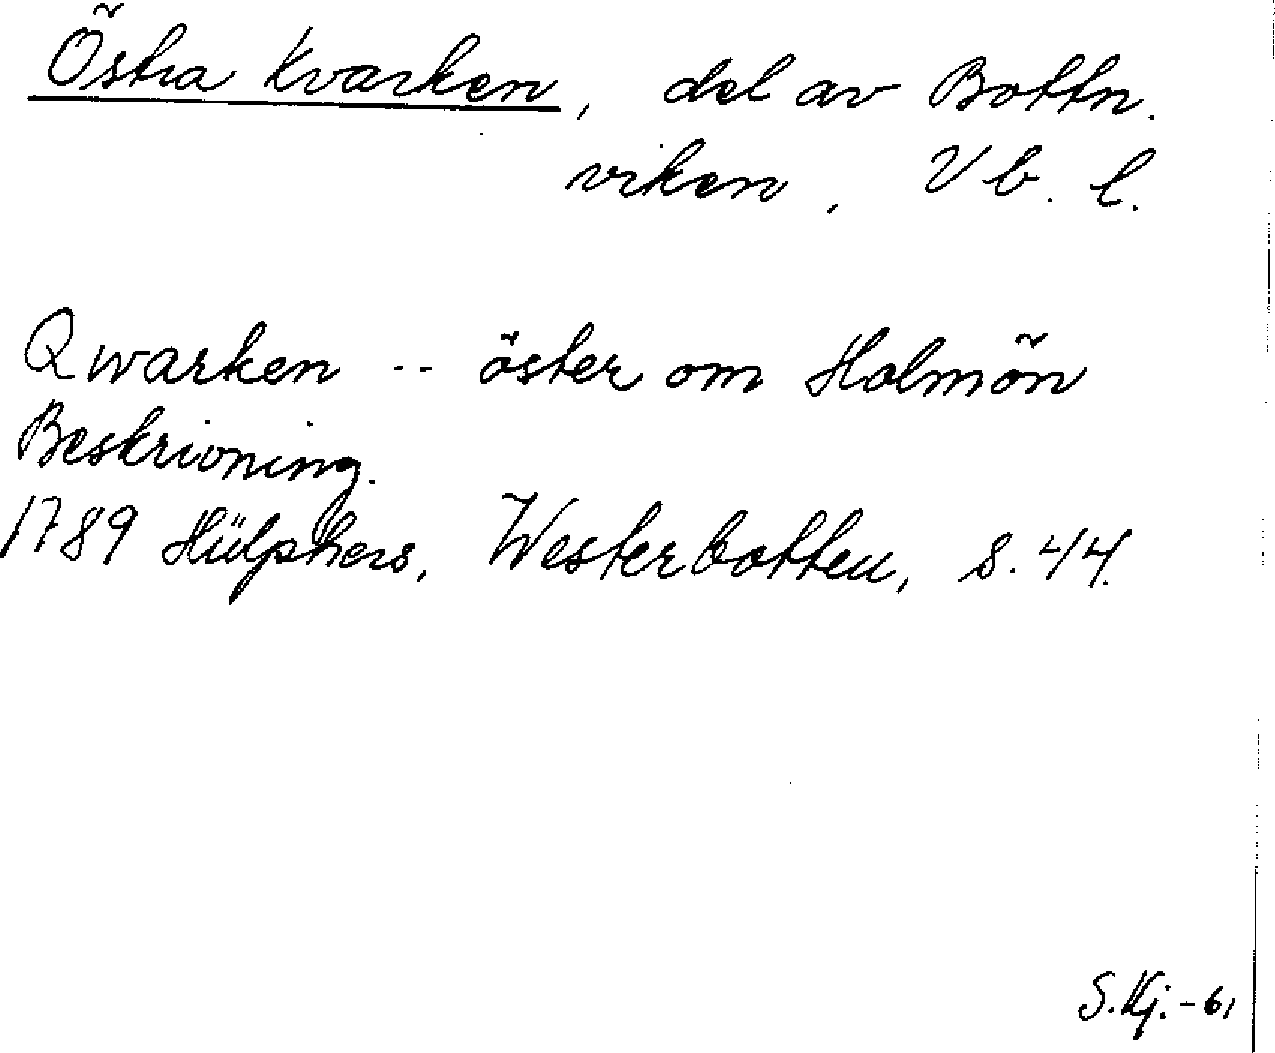 Östra Kvarken, del av Bottn.
viken, Vb. l.
Qwarken -- öster om Holmön
Beskrivning.
1789 Hülphers, Westerbotten, s. 44.
S. Kj. -61